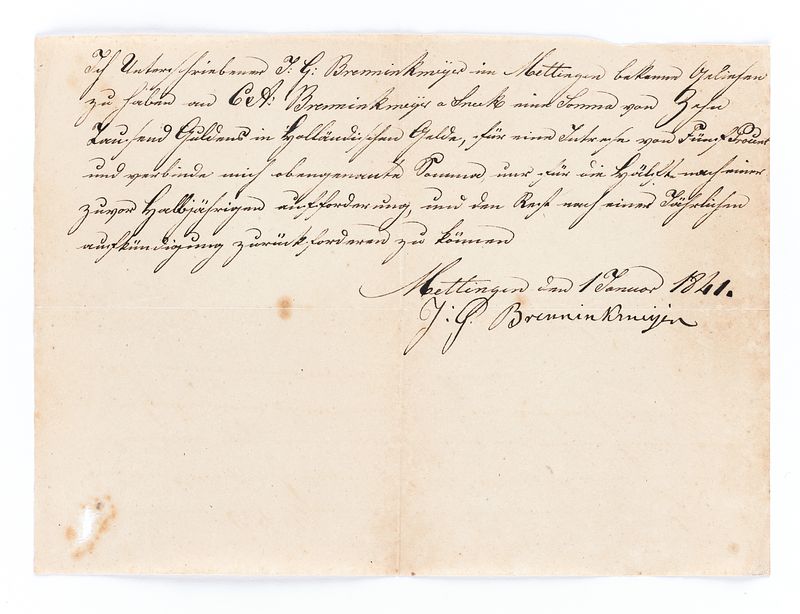 Ich Unterschriebener J: G: Brenninkmeijer in Mettingen bekenne Geliehen
zu haben an C & A: Brenninkmeijer a Sneek eine Somma von Zehn
Tausend Guldens in Holländischen Gelde, für eine Intresse von Fünf Procent
und verbinde mich obengenante Somma nur für die Hälft nach einer
zuvor Halbjährigen aufforderung, und den Rest nach einer Jährlichen
aufkündigung zurück forderen zu können
Mettingen den 1 Januar 1841.
J: G. Brenninkmeijer